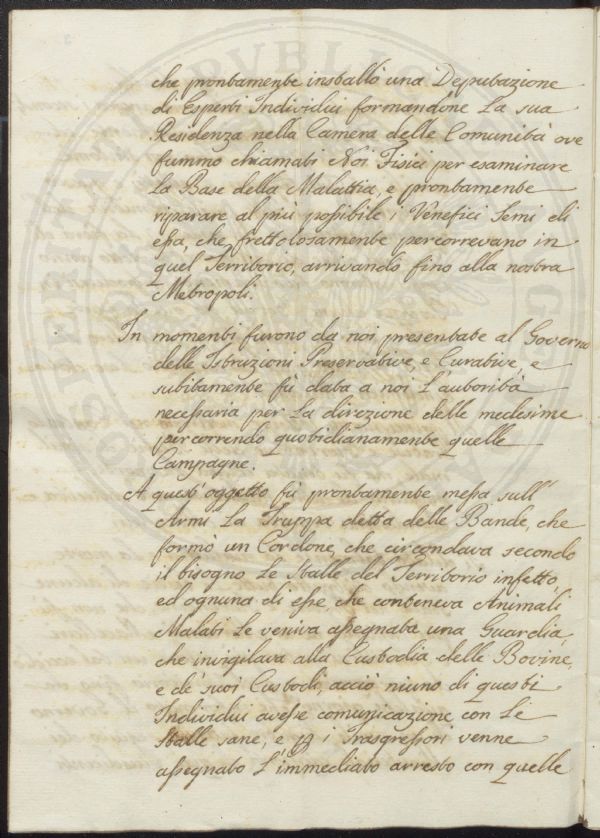 che prontamente installò una Deputazione
di Esperti Individui formandone La sua
Residenza nella Camera delle Comunità ove
fummo chiamati Noi Fisici per esaminare
La Base della Malattia, e prontamente
riparare al più possibile i Venefici Semi di
essa, che frettolosamente percorrevano in
quel Territorio, arrivando fino alla nostra
Metropoli.
In momenti furono da noi presentate al Governo
delle Istruzioni Preservative, e Curative, e
subitamente fù data a noi L'autorità
necessaria per La direzione delle medesime
percorrendo quotidianamente quelle
Campagne.
A quest'oggetto fù prontamente messa sull'
Armi La Truppa detta delle Bande, che
formò un Cordone, che circondava secondo
il bisogno Le Stalle del Territorio infetto,
ed ognuna di esse, che conteneva Animali
Malati Le veniva assegnata una Guardia,
che invigilava alla Custodia delle Bovine,
e de' suoi Custodi, acciò niuno di questi
Individui avesse comunicazione con Le
Stalle sane, e p i Trasgressori venne
assegnato L'immediato arresto con quelle